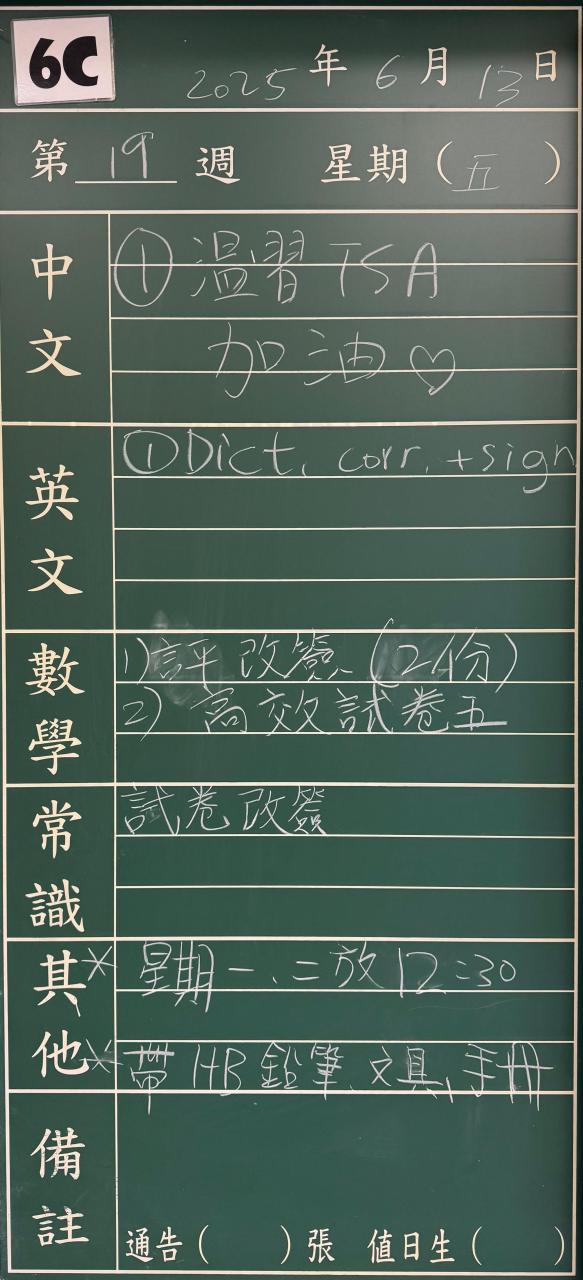 6C
2025年6月13日
第19週 星期(五)
中文
① 温習TSA
加油♡
英文
① Dict. corr. + sign
數學
1) 評改簽(2份)
2) 高效試卷五
常識
試卷改簽
其他
* 星期一、二放12:30
* 帶HB鉛筆、文具、手冊
備註
通告( )張 值日生( )